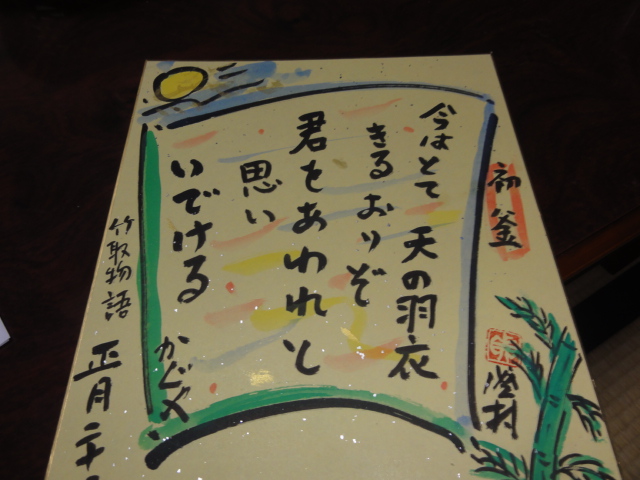 初釜
今はとて 天の羽衣
きるおりぞ
君をあわれと
思い
いでける
かぐや
竹取物語
正月二十